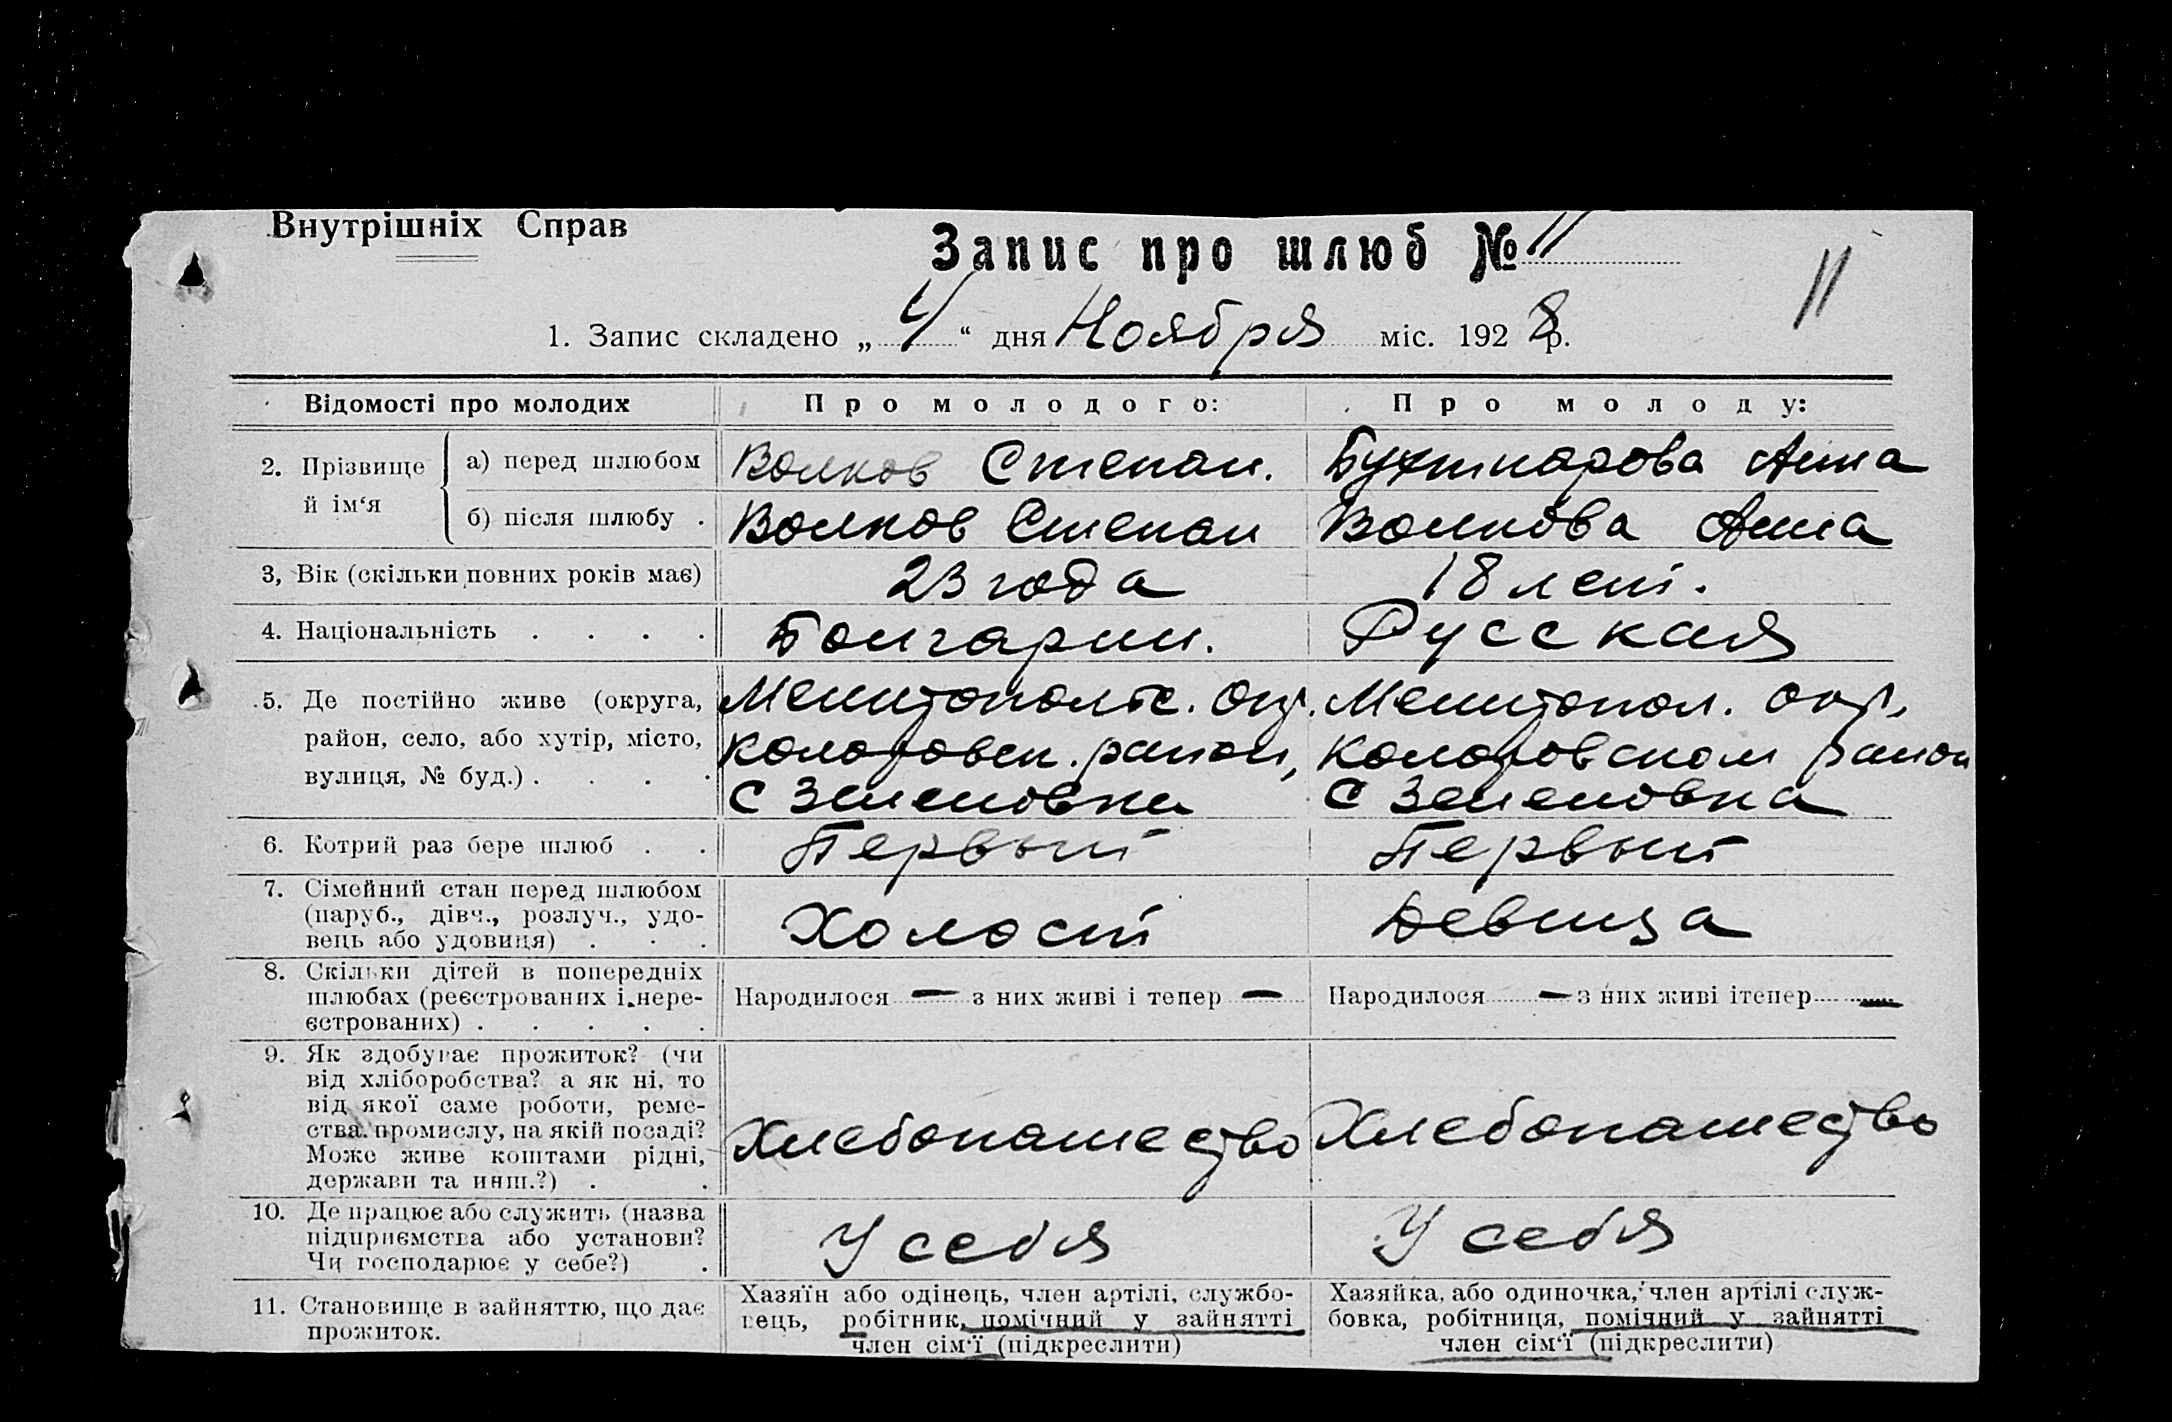 Внутрішніх Справ
Запис про шлюб № 11
11
1. Запис складено „ 4 “ дня Ноября міс. 1928 р.
Відомості про молодих
Про молодого:
Про молоду:
2. Прізвище й ім‘я
а) перед шлюбом
Волков Степан.
Анна
б) після шлюбу .
Волков Степан
Волкова Анна
3, Вік (скільки повних років має)
23 года
18 лет.
4. Національність . . . .
Болгарин.
Русская
5. Де постійно живе (округа,
район, село, або хутір, місто,
вулиця, № буд.) . . . .
Мелитопольс. Окр.
район,
С Зеленовка
Мелитопол. окр.
район
С Зеленовка
6. Котрий раз бере шлюб . .
Первый
Первый
7. Сімейний стан перед шлюбом
(паруб., дівч., розлуч., удо-
вець або удовиця) . . .
Холост
Девица
8. Скільки дітей в попередніх
шлюбах (реєстрованих і нере-
єстрованих) . . . . .
Народилося — з них живі і тепер —
Народилося — з них живі ітепер —
9. Як здобуває прожиток? (чи
від хліборобства? а як ні, то
від якої саме роботи, реме-
ства. промислу, на якій посаді?
Може живе коштами рідні,
держави та инш.?) . .
Хлебопашество
Хлебопашество
10. Де працює або служить (назва
підприємства або установи?
Чи господарює у себе?) .
У себя
У себя
11. Становище в зайняттю, що дає
прожиток.
Хазяїн або одінець, член артілі, службо-
вець, робітник, помічний у зайнятті
член сім‘ї (підкреслити)
Хазяйка, або одиночка, член артілі служ-
бовка, робітниця, помічний у зайнятті
член сім‘ї (підкреслити)